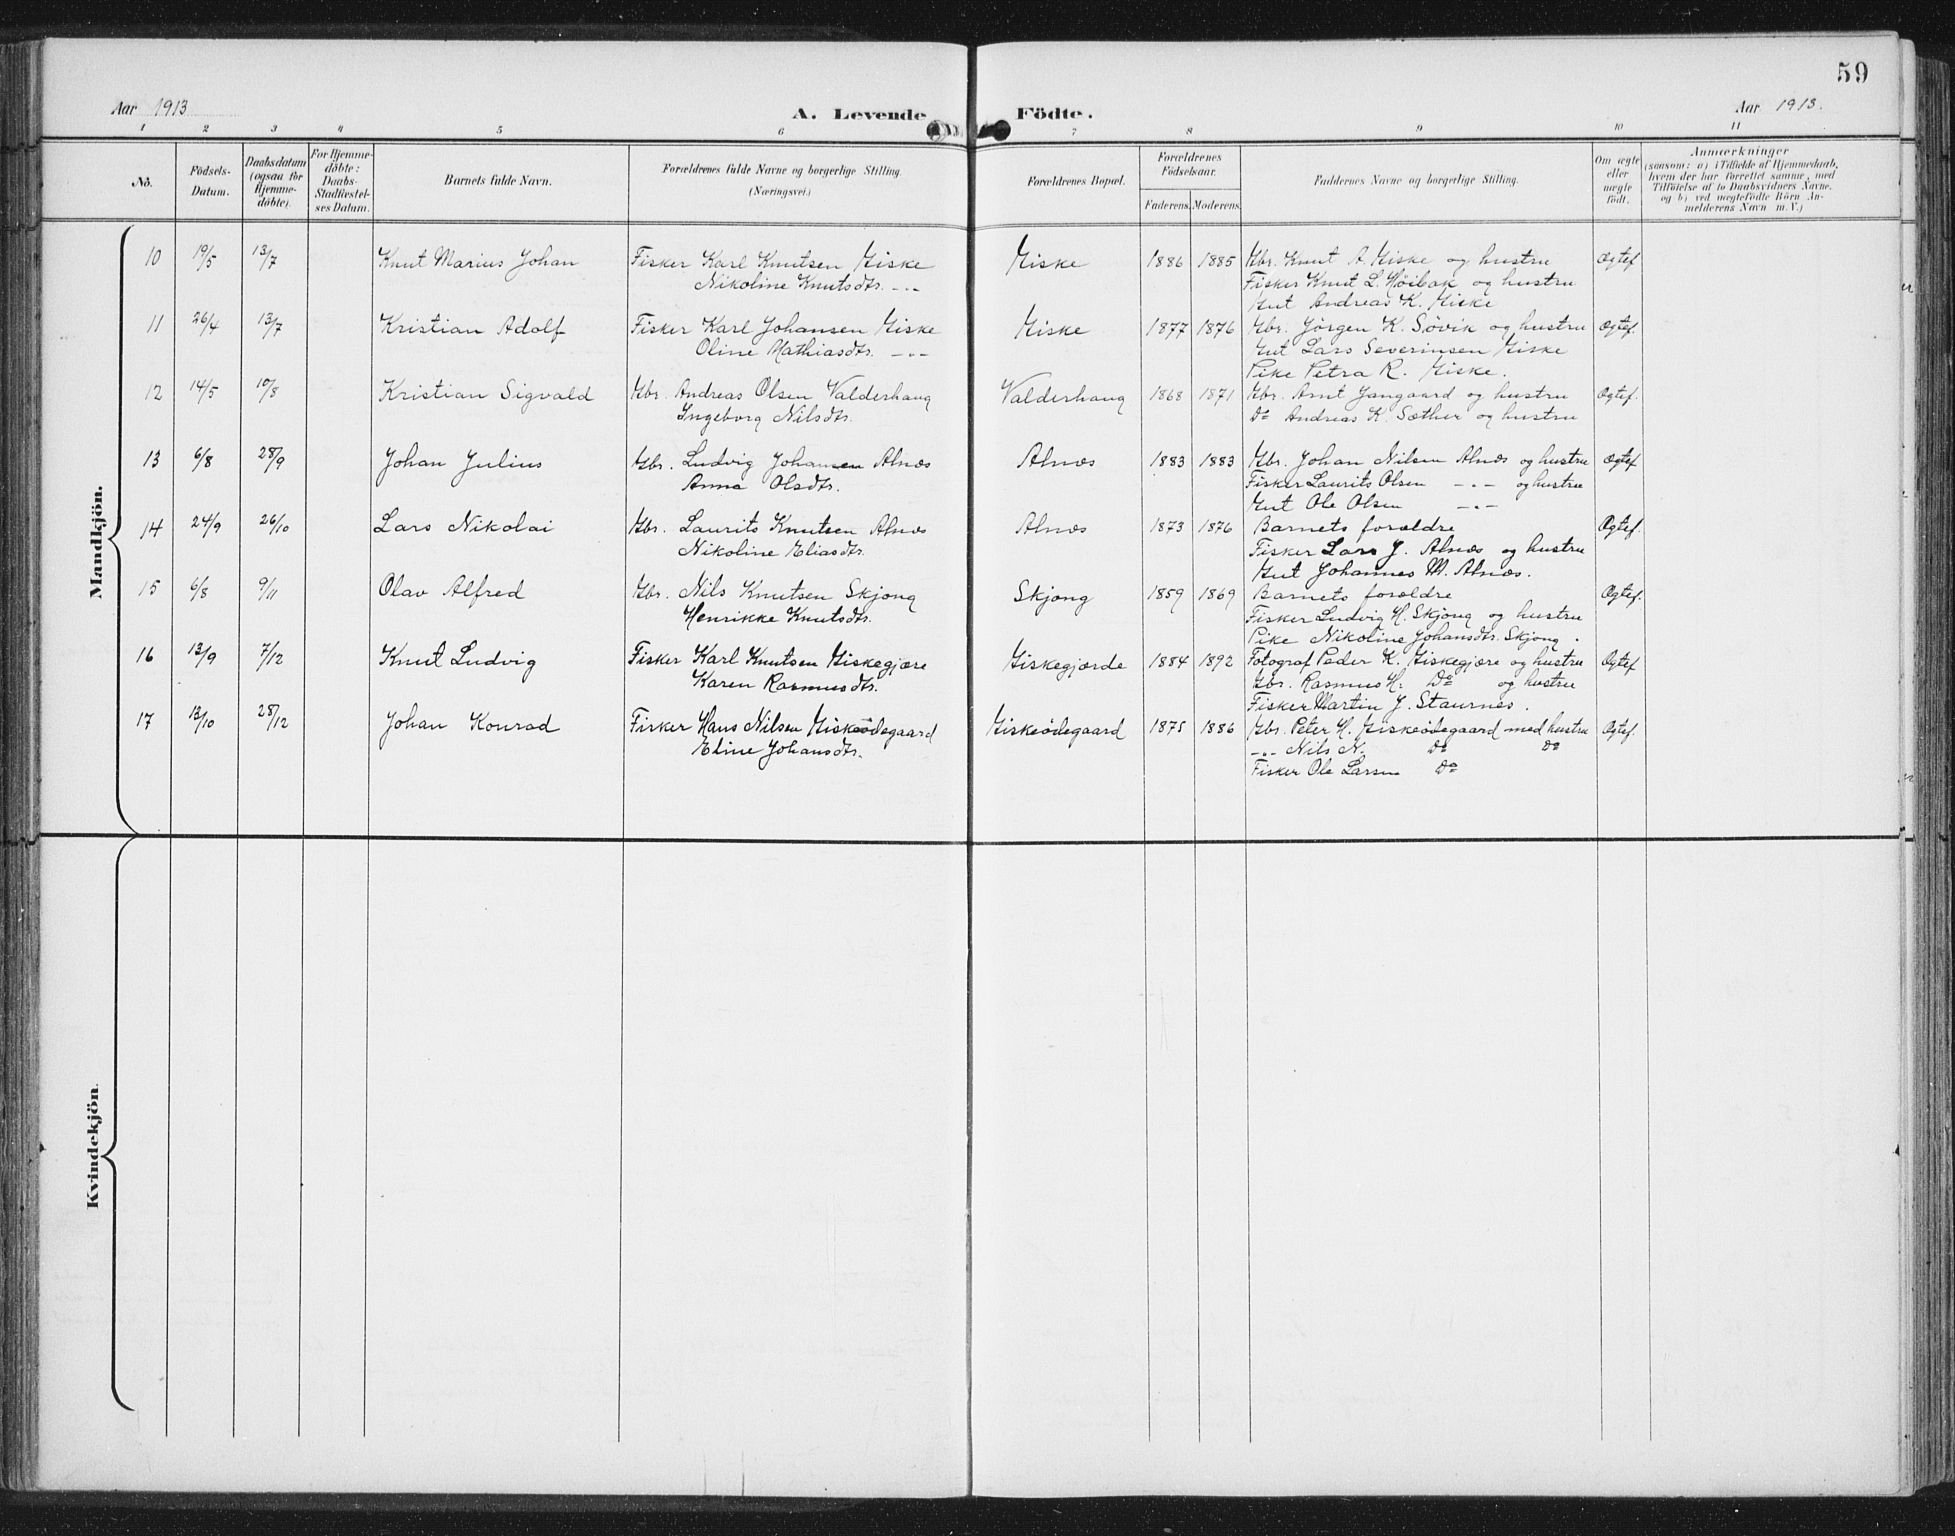 59
Aar 1913
A. Levende Födte.
Aar 1913.
1 2 3 4 5 6 7 8 9 10 11
No.
Födsels-
Datum.
Daabsdatum
(ogsaa for
Hjemme-
döbte).
For Hjemme-
döbte:
Daabs-
Stadfæstel-
ses Datum.
Barnets fulde Navn.
Forældrenes fulde Navne og borgerlige Stilling.
(Næringsvei.)
Forældrenes Bopæl.
Forældrenes
Födselsaar.
Faderens. Moderens.
Faddernes Navne og borgerlige Stilling.
Om ægte
eller
uægte
födt.
Anmærkninger
(saasom: a) i Tilfælde af Hjemmedaab,
hvem der har forrettet samme, med
Tilföielse af to Daabsvidners Navne.
og b) ved uægtefödte Börn An-
melderens Navn m. V.)
Mandkjön.
10 19/5 13/7 Knut Marius Johan Fisker Karl Knutsen Giske Giske 1886 1885 Gbr. Knut A. Giske og hustru Ægtef.
Nikoline Knutsdtr. -"- Fisker Knut L. Høibak og hustru
Gut Andreas K. Giske
11 26/4 13/7 Kristian Adolf Fisker Karl Johansen Giske Giske 1877 1876 Gbr. Jørgen K. Søvik og hustru Ægtef.
Oline Mathiasdtr. -"- Gut Lars Severinsen Giske
Pike Petra R. Giske.
12 14/5 10/8 Kristian Sigvald Gbr. Andreas Olsen Valderhaug Valderhaug 1868 1871 Gbr. Arnt Jangaard og hustru Ægtef.
Ingeborg Nilsdtr. Do Andreas K. Sæther og hustru
13 6/8 28/9 Johan Julius Gbr. Ludvig Johansen Alnæs Alnæs 1883 1883 Gbr. Johan Nilsen Alnæs og hustru Ægtef
Anna Olsdtr. Fisker Laurits Olsen -"- og hustru
Gut Ole Olsen -"-
14 24/9 26/10 Lars Nikolai Gbr. Laurits Knutsen Alnæs Alnæs 1873 1876 Barnets forældre Ægtef.
Nikoline Eliasdtr. Fisker Lars J. Alnæs og hustru
Gut Johannes M. Alnæs.
15 6/8 9/11 Olav Alfred Gbr. Nils Knutsen Skjong Skjong 1859 1869 Barnets forældre Ægtef.
Henrikke Knutsdtr. Fisker Ludvig H. Skjong og hustru
Pike Nikoline Johansdtr. Skjong.
16 13/9 7/12 Knut Ludvig Fisker Karl Knutsen Giskegjære Giskegjærde 1884 1892 Fotograf Peder K. Giskegjære og hustru Ægtef
Karen Rasmusdtr. Gbr. Rasmus H. Do og hustru
Fisker Martin J. Staurnes.
17 13/10 28/12 Johan Konrad Fisker Hans Nilsen Giskeødegaard Giskeødegaard 1875 1886 Gbr. Peter H. Giskeødegaard med hustru Ægtef.
Eline Johansdtr. -"- Nils N. Do Do
Fisker Ole Larsen Do
Kvindekjön.